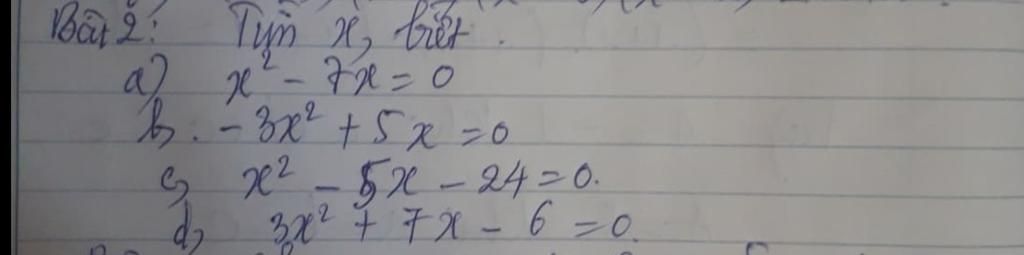 Bài 2: Tìm x, biết.
a) x² - 7x = 0
b, -3x² + 5x = 0
c, x² - 5x - 24 = 0.
d, 3x² + 7x - 6 = 0.